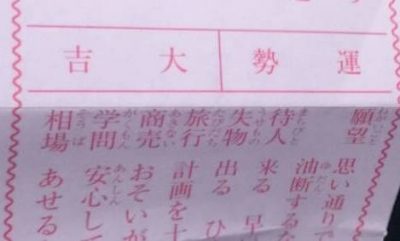 運勢
大吉
願望 思い通りで
油断する
待人 来る 早
失物 出る ひ
旅行 計画を
商売 おそいが
学問 安心して
相場 あせる